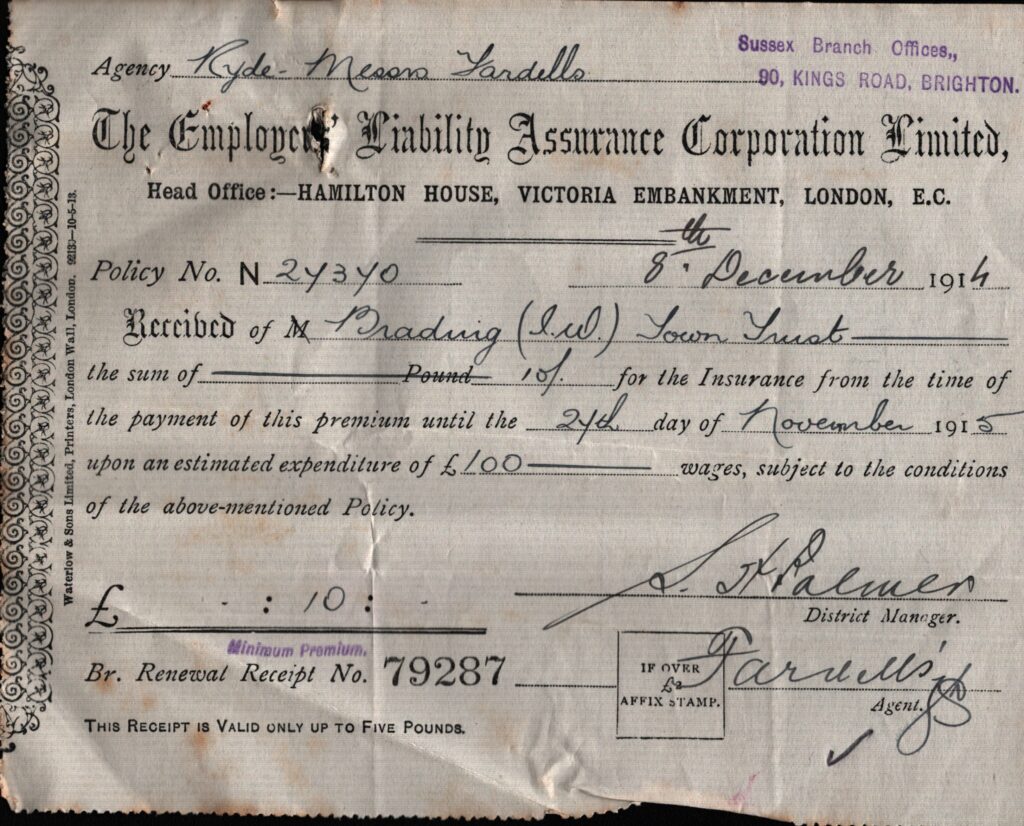 Sussex Branch Offices,,
90, KINGS ROAD, BRIGHTON.
Agency Ryde - Messrs Fardells
The Employers' Liability Assurance Corporation Limited,
Head Office:—HAMILTON HOUSE, VICTORIA EMBANKMENT, LONDON, E.C.
Policy No. N 27370 8th December 1914
Received of M Brading (I.W.) Town Trust
the sum of Pound 10/. for the Insurance from the time of
the payment of this premium until the 24th day of November 1915
upon an estimated expenditure of £100 wages, subject to the conditions
of the above-mentioned Policy.
S. H Palmer
District Manager.
£ - : 10 : -
Minimum Premium.
Br. Renewal Receipt No. 79287
IF OVER
£2
AFFIX STAMP.
Fardells
Agent.
THIS RECEIPT IS VALID ONLY UP TO FIVE POUNDS.
Waterlow & Sons Limited, Printers, London Wall, London. 92130—10-5-13.